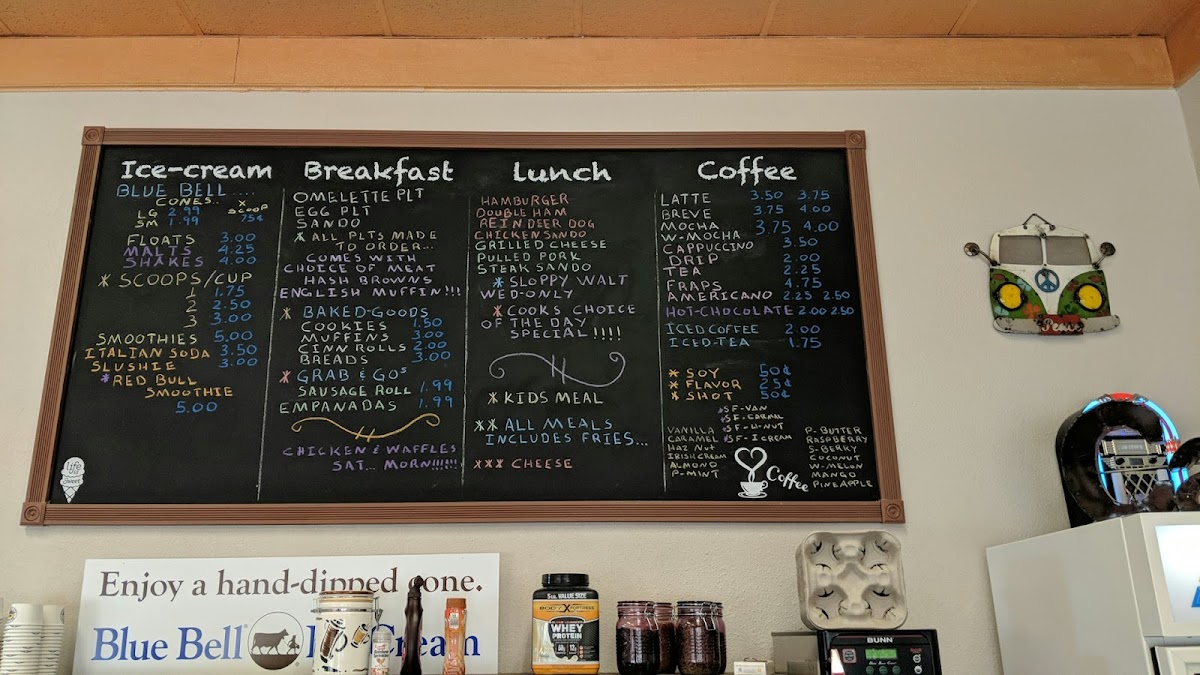 Ice-cream
BLUE BELL....
CONES.. x
LG 2.99 SCOOP
SM 1.99 75¢
FLOATS 3.00
MALTS 4.25
SHAKES 4.00
* SCOOPS/CUP
1 1.75
2 2.50
3 3.00
SMOOTHIES 5.00
ITALIAN SODA 3.50
SLUSHIE 3.00
*RED BULL
SMOOTHIE
5.00
life is sweet
Breakfast
OMELETTE PLT
EGG PLT
SANDO
* ALL PLTS MADE
TO ORDER...
COMES WITH
CHOICE OF MEAT
HASH BROWNS
ENGLISH MUFFIN!!!
* BAKED-GOODS
COOKIES 1.50
MUFFINS 3.00
CINN ROLLS 2.00
BREADS 3.00
* GRAB & GOS
SAUSAGE ROLL 1.99
EMPANADAS 1.99
CHICKEN & WAFFLES
SAT... MORN!!!!!!
Lunch
HAMBURGER
DOUBLE HAM
REINDEER DOG
CHICKEN SANDO
GRILLED CHEESE
PULLED PORK
STEAK SANDO
*SLOPPY WALT
WED-ONLY
* COOKS CHOICE
OF THE DAY
SPECIAL!!!!
* KIDS MEAL
** ALL MEALS
INCLUDES FRIES...
*** CHEESE
Coffee
LATTE 3.50 3.75
BREVE 3.75 4.00
MOCHA
W-MOCHA 3.75 4.00
CAPPUCCINO 3.50
DRIP 2.00
TEA 2.25
FRAPS 4.75
AMERICANO 2.25 2.50
HOT-CHOCOLATE 2.00 2.50
ICED COFFEE 2.00
ICED-TEA 1.75
* SOY 50¢
* FLAVOR 25¢
* SHOT 50¢
*SF-VAN
*SF-CARMAL
VANILLA *SF-H-NUT
CARAMEL *SF-I CREAM
HAZ NUT
IRISHCREAM
ALMOND
P-MINT
P-BUTTER
RASPBERRY
S-BERKY
COCONUT
W-MELON
MANGO
PINEAPPLE
Coffee
Peace
Enjoy a hand-dipped cone.
Blue Bell Cream
5LB. VALUE SIZE
BODY FORTRESS
WHEY
PROTEIN
BUNN